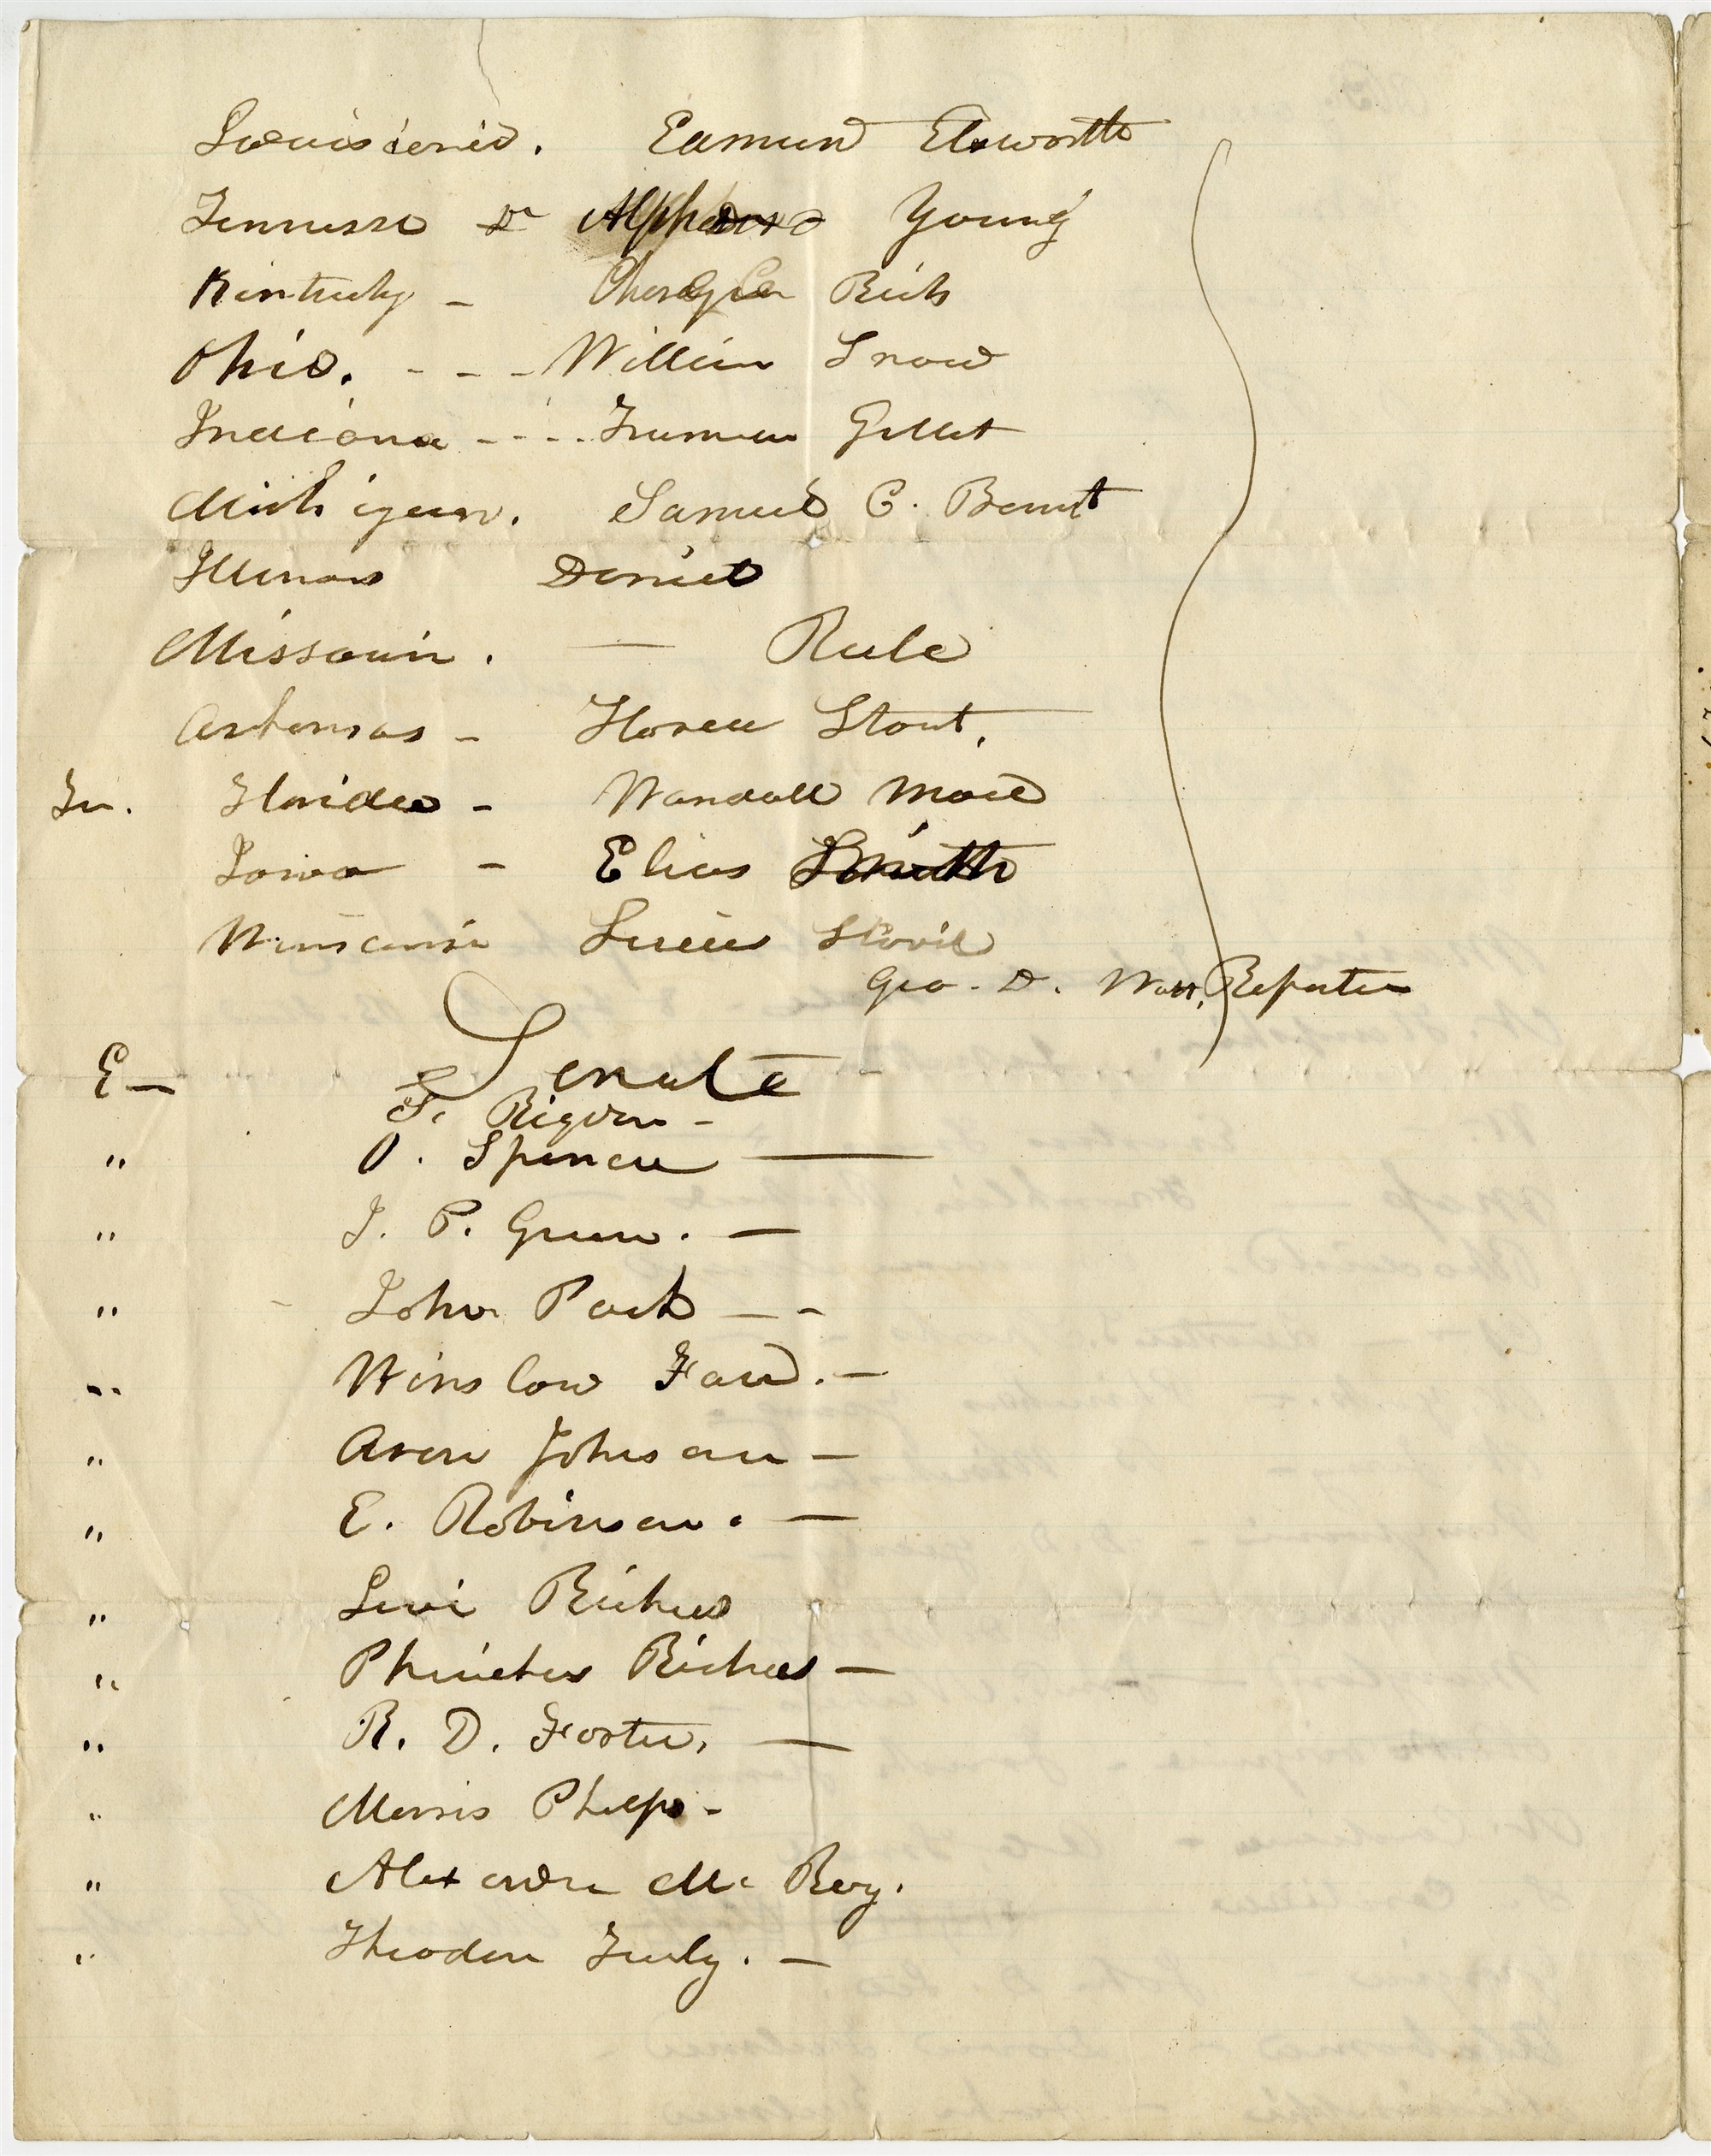 Louisiana. Edmund Elsworth
Tennesse Dr Alphonso Young
Kentucky - Rich
Ohio. - - - William Snow
Indiana - - - - Truman Gillet
Michigan. Samuel C. Bennt
Illinois Daniel
Missouri. — Rule
Arkansas - Horace Stout.
In. Florida - Wandall Mace
Iowa - Elias Smith
Winsconsin Lucius Scovil
Geo. D. Watt, Reporter
Senate
E — S. Rigdon -
" O. Spencer —
" J. P. Green. —
" John Pack — -
" Winslow Farr. —
" Aron Johnson —
" E. Robinson. —
" Levi Richards
" Phinehas Richards —
" R. D. Foster, —
" Morris Phelps -
" Alexander Mc Ray.
" Theodore Turly. —